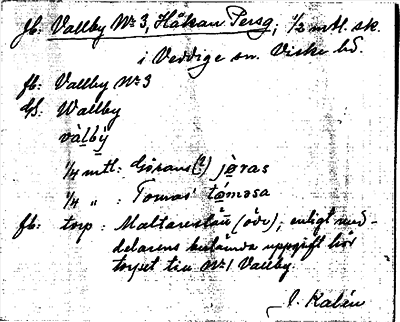 fb. Vallby Nr 3, Håkan Persg, 1/2 mtl. sk.
i Veddige sn. Viske hd.
fb: Vallby Nr 3
Gs. Wallby
vàlbý
1/4 mtl: Görans (?) jø̀ras
1/4 „ : Tomas' tómasa
fb: torp: Maltarestån (öde); enligt med-
delarens bestämda uppgift hör
torpet till Nr 1 Vallby.
J. Kalén